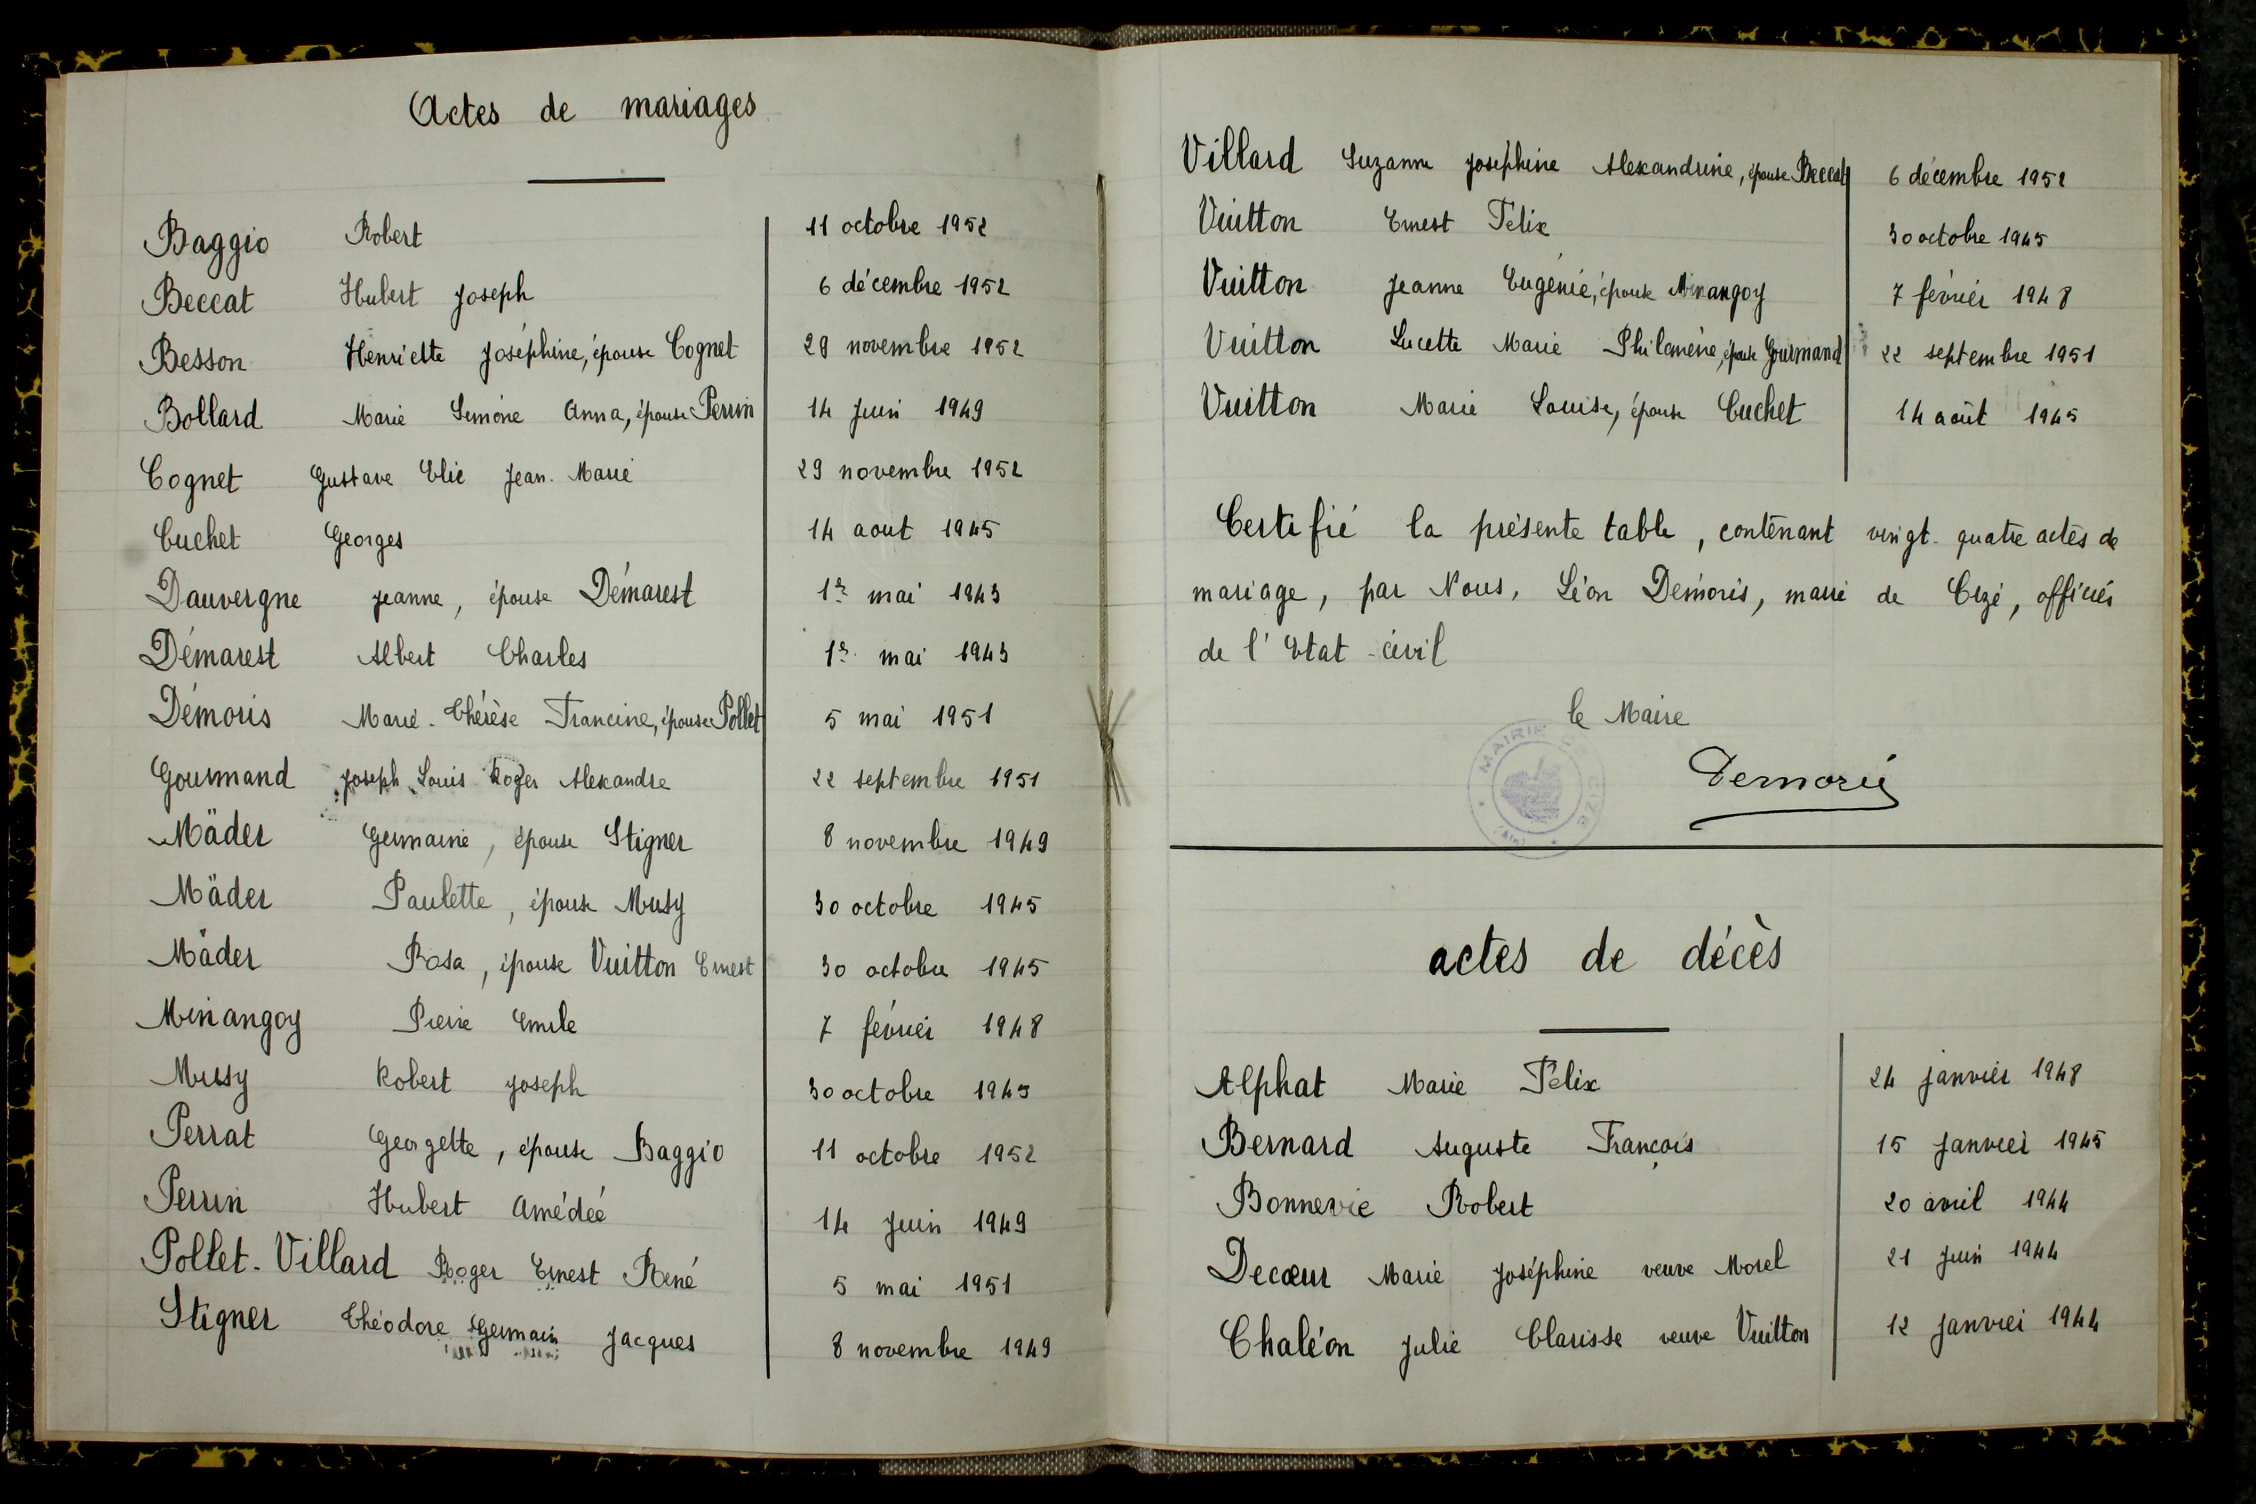 Actes de mariages
Baggio Robert 11 octobre 1952
Beccat Hubert Joseph 6 décembre 1952
Besson Henriette Joséphine, épouse Cognet 29 novembre 1952
Bollard Marie Simone Anna, épouse Perrin 14 Juin 1949
Cognet Gustave Elie Jean-Marie 29 novembre 1952
Cuchet Georges 14 aout 1945
Dauvergne Jeanne, épouse Démarest 1er mai 1943
Démarest Albert Charles 1er mai 1943
Démoris Marie-Thérèse Francine, épouse Pollet 5 mai 1951
Gourmand Joseph Louis Roger Alexandre 22 septembre 1951
Mäder Germaine, épouse Stigner 8 novembre 1949
Mäder Paulette, épouse Musy 30 octobre 1945
Mäder Rosa, épouse Vuitton Ernest 30 octobre 1945
Minangoy Pierre Emile 7 février 1948
Musy Robert Joseph 30 octobre 1945
Perrat Georgette, épouse Baggio 11 octobre 1952
Perrin Hubert Amédée 14 Juin 1949
Pollet-Villard Roger Ernest René 5 mai 1951
Stigner Théodore Germain Jacques 8 novembre 1949
Villard Suzanne Joséphine Alexandrine, épouse Beccat 6 décembre 1952
Vuitton Ernest Félix 30 octobre 1945
Vuitton Jeanne Eugénie, épouse Minangoy 7 février 1948
Vuitton Lucette Marie Philomène, épouse Gourmand 22 septembre 1951
Vuitton Marie Louise, épouse Cuchet 14 août 1945
Certifié la présente table, contenant vingt-quatre actes de
mariage, par Nous, Léon Démoris, maire de Cize, officier
de l'Etat-civil
le Maire
MAIRIE DE CIZE
(Ain)
Demoris
actes de décès
Alphat Marie Félix 24 janvier 1948
Bernard Auguste François 15 Janvier 1945
Bonnevie Robert 20 avril 1944
Decœur Marie Joséphine veuve Morel 21 Juin 1944
Chaléon Julie Clarisse veuve Vuitton 12 Janvier 1944